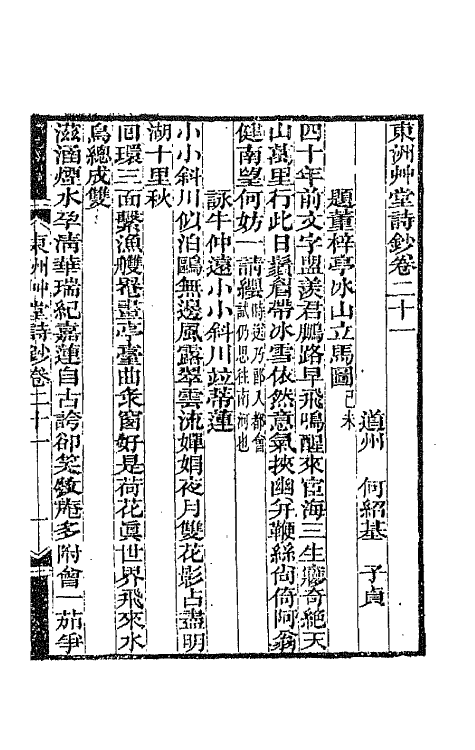 東洲艸堂詩鈔卷二十一
道州　何紹基　子貞
題董梓亭冰山立馬圖己未
四十年前文字盟羨君鵬路早飛鳴醒來宦海三生夢奇絕天
山萬里行此日鬚眉帶冰雪依然意氣挾幽并鞭絲尙倚阿翁
健南望何妨一請纓時送乃郎入都會試仍思往南河也
詠牛仲遠小小斜川竝蒂蓮
小小斜川似泊鷗無邊風露翠雲流嬋娟夜月雙花影占盡明
湖十里秋
回環三面繫漁艭罨畫亭臺曲衆窗好是荷花眞世界飛來水
鳥總成雙
滋涵煙水孕淸華瑞紀嘉蓮自古誇卻笑放庵多附會一茄爭
東洲艸堂詩鈔卷二十一　一